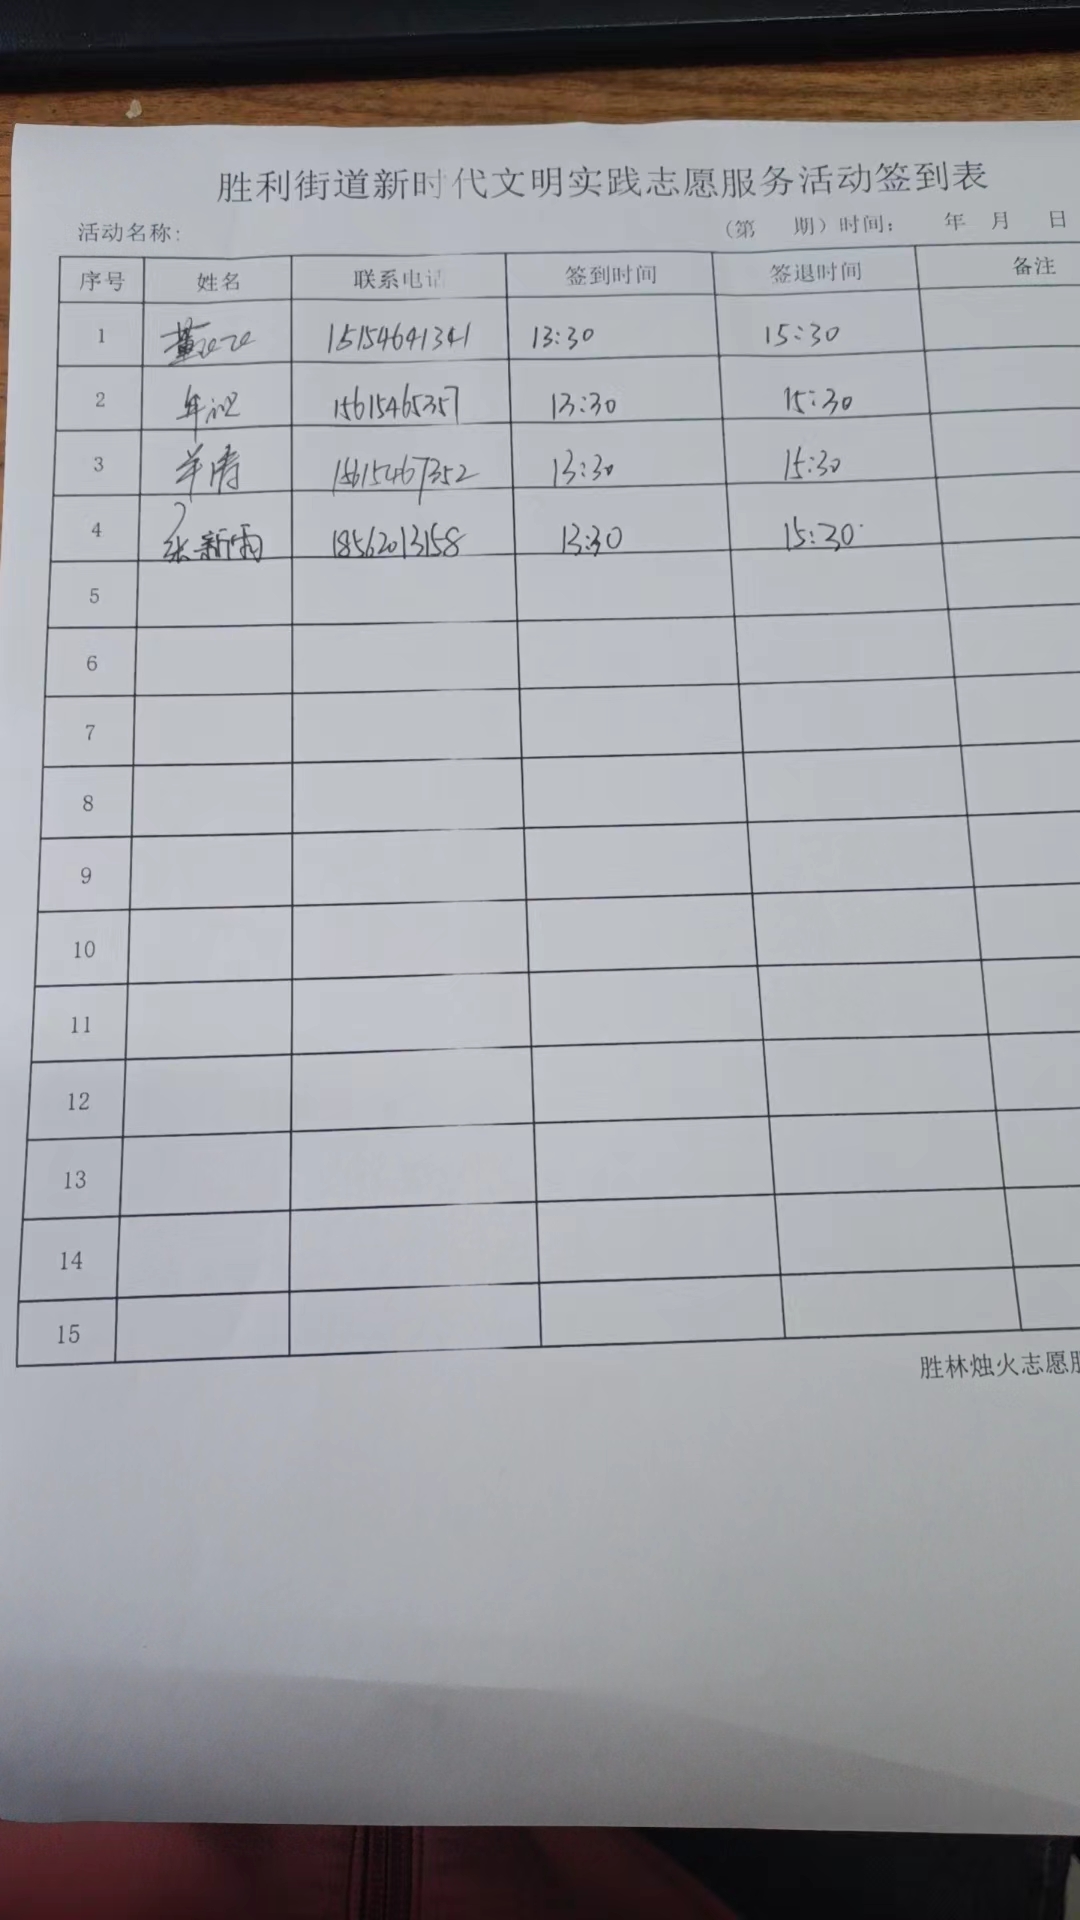 胜利街道新时代文明实践志愿服务活动签到表
活动名称: （第 期）时间: 年 月 日
序号 姓名 联系电话 签到时间 签退时间 备注
1 董 15154641341 13:30 15:30
2 1561546535 13:30 15:30
3 13:30 15:30
4 张新雨 18562013158 13:30 15:30
5
6
7
8
9
10
11
12
13
14
15
胜林烛火志愿服